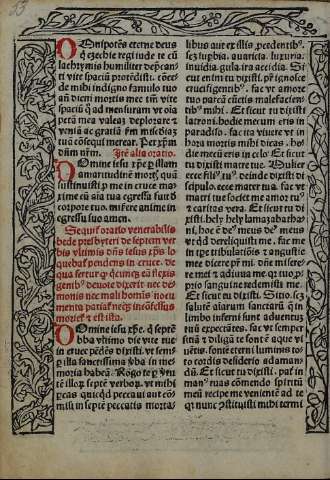 Omnipotēs eterne deus
q̄ ezechie regi iude te cū
lachrymis humiliter dep̄can
ti vite spaciū prorēdisti. cōce
de mihi indigno famulo tuo
an̄ diem mortis mee tm̄ vite
spaciū q̄ ad mensuram vt oīa
pctā mea valeaȝ deplorare &
veniā ac gratiā
tua cōsequi merear. Per xp̄m
dn̄m nr̄m. Jtē alia oratio.
Domine iesu xp̄e p̱ illam
amaritudinē mortꝭ quā
sustinuisti p̱ me in cruce ma
xime cū aīa tua egressa fuit d̄
corpore tuo. miserere anime in
egressu suo amen.
Sequit̄ oratio venerabilis
bede presbyteri de septem ver
bis vltimis dn̄i iesus xp̄s lo
quebat̄ pendens in cruce. de
qua fertur q̄ q̄cunqꝫ eā flexis
genibꝰ deuote dixerit nec de-
monis nec mali homīs nocu
menta
moriet̄
Domine iesu xp̄e. q̄ septē
vba vltimo die vite tue
in cruce pēdēs dixisti. vt sem
p̱ illa sanctissima vba in me
moria habeā. Rogo te p̱ v̄tu
tē illoꝝ septē verboꝝ. vt mihi
p̱cas quicqd peccaui aut cō
misi in septē peccatis morta-
libus
scꝫ supbia. auaricia. luxuria.
inuidia. gula. ira accidia. Si
cut enim tu dixisti. p̄r ignosce
crucifigentibꝰ. fac vt amore
tuo parcā cūctis malefacien-
tibꝰ mihi. Et sicut tu dixisti
latroni. hodie mecum eris in
paradiso. fac ita viuere vt in
hora mortis mihi dicas. ho
die mecū eris in celo. Et sicut
tu dixisti matre tue. Mulier
ecce filiꝰ tuꝰ. deinde dixisti di-
scipulo. ecce mater tua. fac vt
matri tue societ me amor tuꝰ
& caritas vera. Et sicut tu
dixisti. hely hely lamazabatha
ni. hoc ē deꝰ meus deꝰ meus
vt qd dereliquisti me. fac me
in oēe tribulatiōe & angustie
mee dicere pr̄ mi. dn̄e misere
re mei & adiuua me
prio sanguine redemisti me.
Et sicut tu dixisti. Sitio. scꝫ
salutē aīarum sanctarū q̄ in
limbo inferni sunt aduentuȝ
tuū expectātes. fac vt semper
sitiā & diligā te fontē aque vi
uētis. fontē eterni luminis to
to cordis desiderio adaman-
dū. Et sicut tu dixisti. pat̄ in
manꝰ tuas cōmendo spiritū
meū recipe me venientē ad te
qꝛ nunc